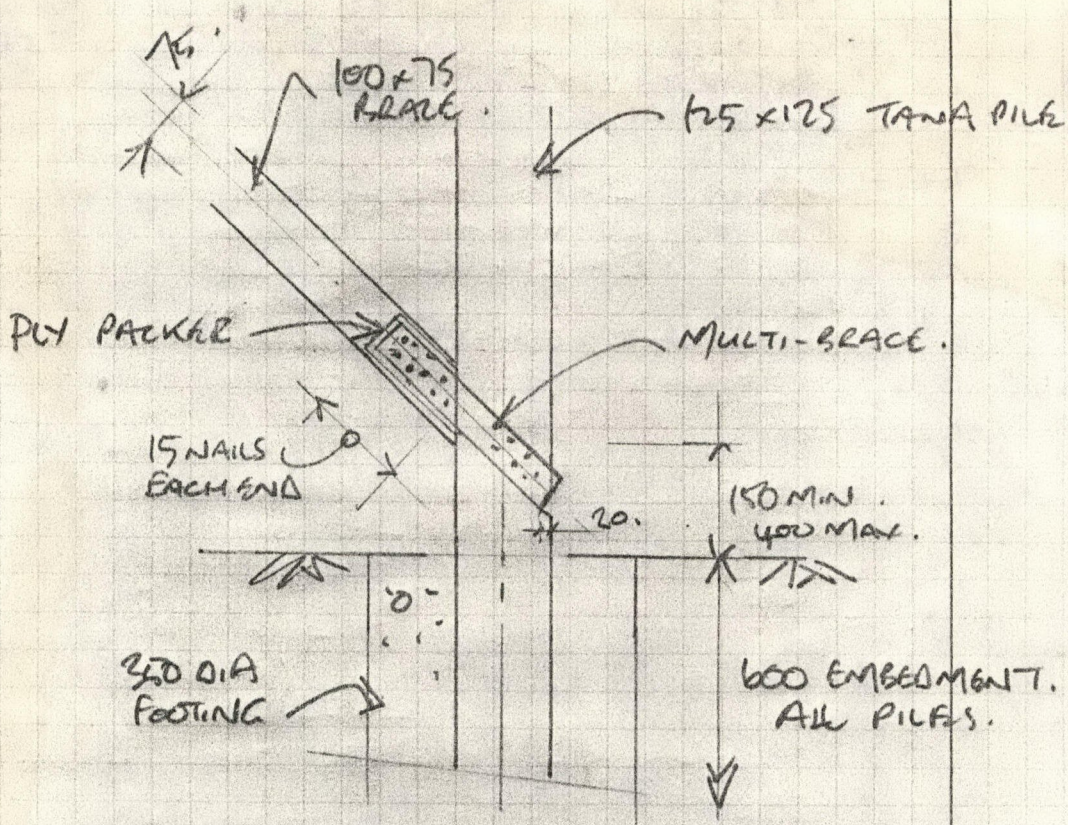 100x75
BRACE.
125x125 TANA PILE
PLY PACKER
MULTI-BRACE.
15 NAILS
EACH END
20.
150 MIN.
400 MAX.
350 DIA
FOOTING
600 EMBEDMENT.
ALL PILES.